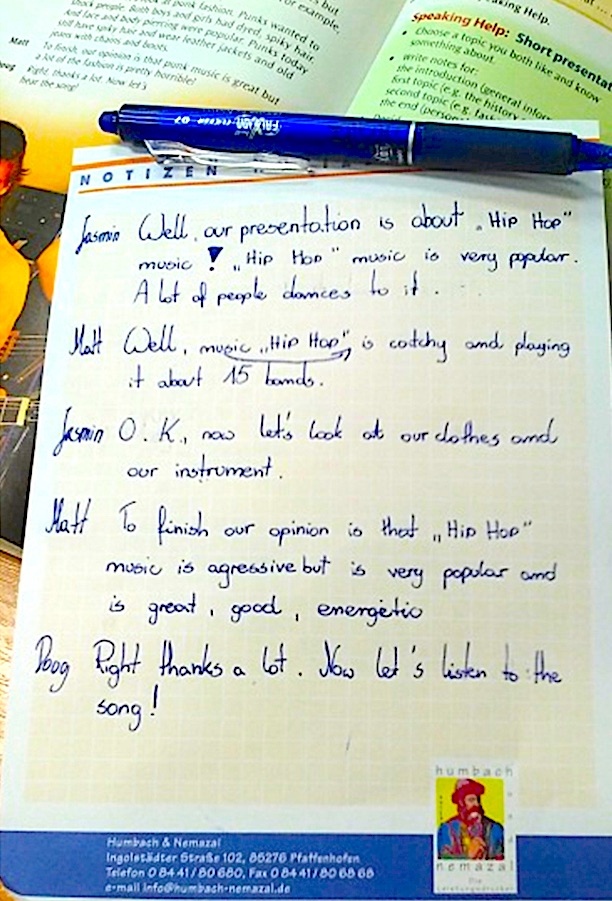 punk fashion. Punks wanted to
shock people. Both boys and girls had dred, spiky hair,
and face and body piercing were popular. Punks today
still have spiky hair and wear leather jackets and old
jeans with chains and boots.
Matt To finish, our opinion is that punk music is great but
a lot of the fashion is pretty horrible!
Right, thanks a lot. Now let's
hear the song!
Speaking Help.
Speaking Help: Short presentat
• Choose a topic you both like and know
something about.
• Write notes for:
the introduction (general infor
first topic (e.g. the history
second topic (e.g. fash
the end (person
NOTIZEN
Jasmin Well, our presentation is about „Hip Hop"
music ! „Hip Hop" music is very popular.
A lot of people dances to it.
Matt Well, music „Hip Hop" is catchy and playing
it about 15 bands.
Jasmin O.K., now let's look at our clothes and
our instrument.
Matt To finish our opinion is that „Hip Hop"
music is agressive but is very popular and
is great, good, energetic
Doog Right thanks a lot. Now let's listen to the
song!
humbach
nemazal
Humbach & Nemazal
Ingolstädter Straße 102, 85276 Pfaffenhofen
Telefon 0 84 41 / 80 680, Fax 0 84 41 / 80 68 68
e-mail info@humbach-nemazal.de